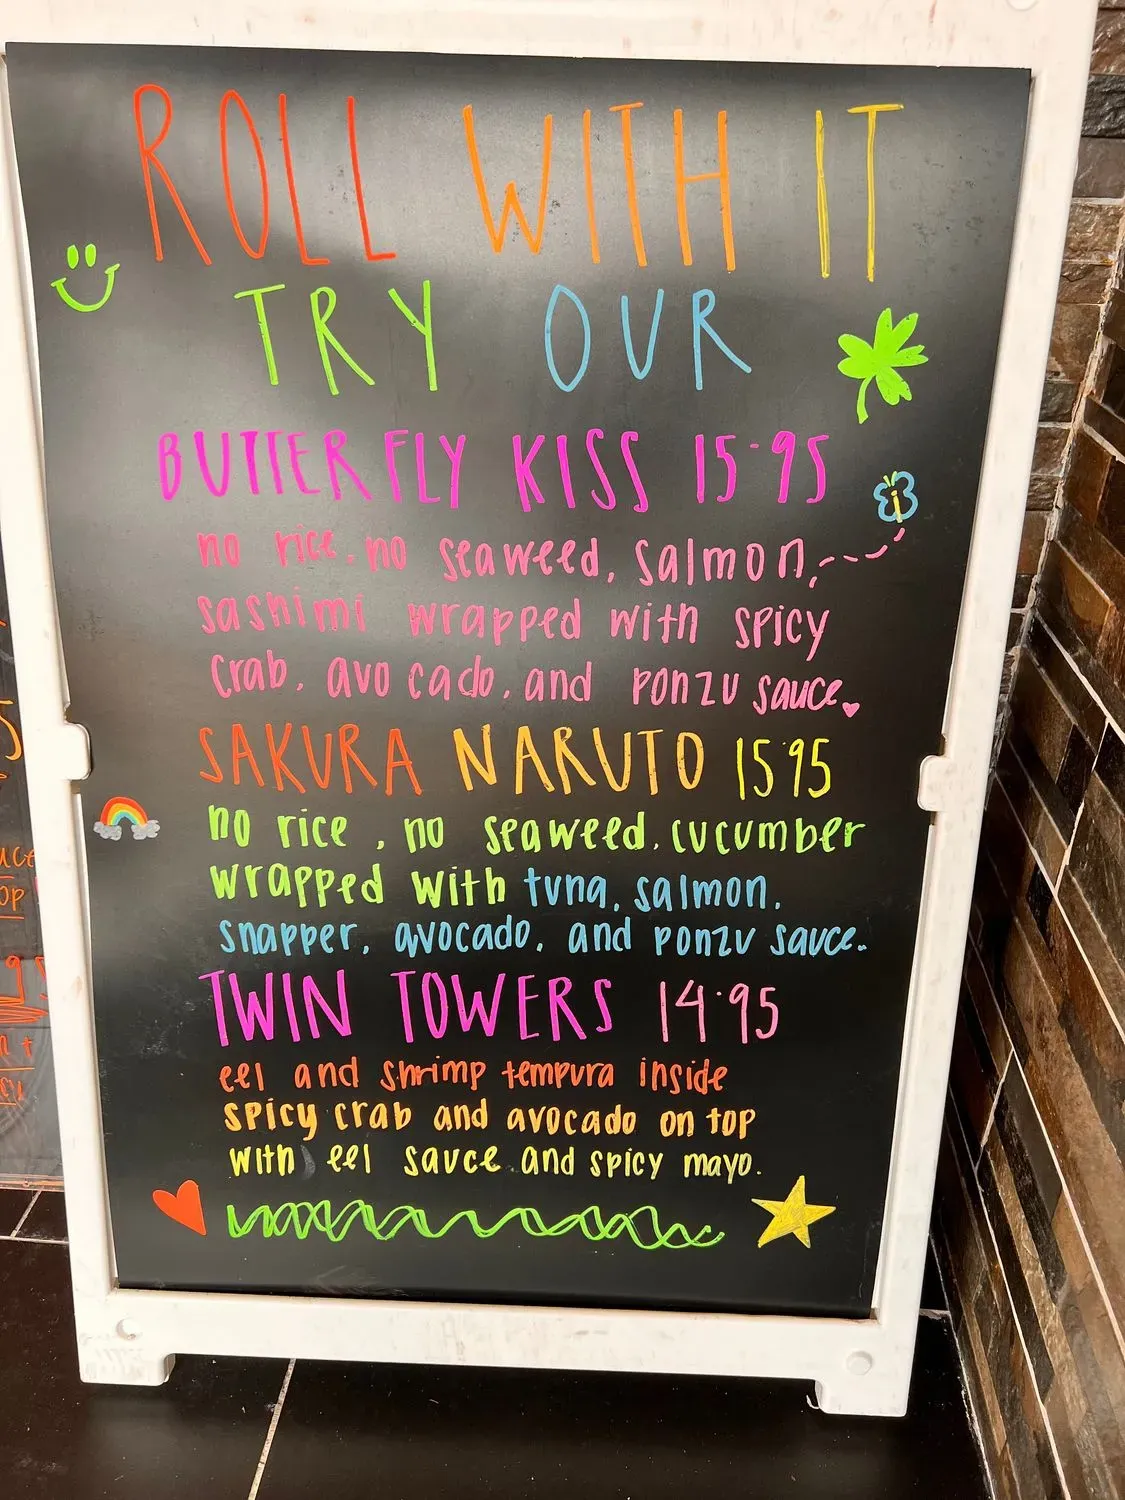 ROLL WITH IT
TRY OUR
BUTTERFLY KISS 15.95
no rice. no seaweed, salmon,
sashimi wrapped with spicy
crab, avocado, and ponzu sauce
SAKURA NARUTO 15.95
no rice, no seaweed, cucumber
wrapped with tuna, salmon,
snapper, avocado, and ponzu sauce.
TWIN TOWERS 14.95
eel and shrimp tempura inside
spicy crab and avocado on top
with eel sauce and spicy mayo.